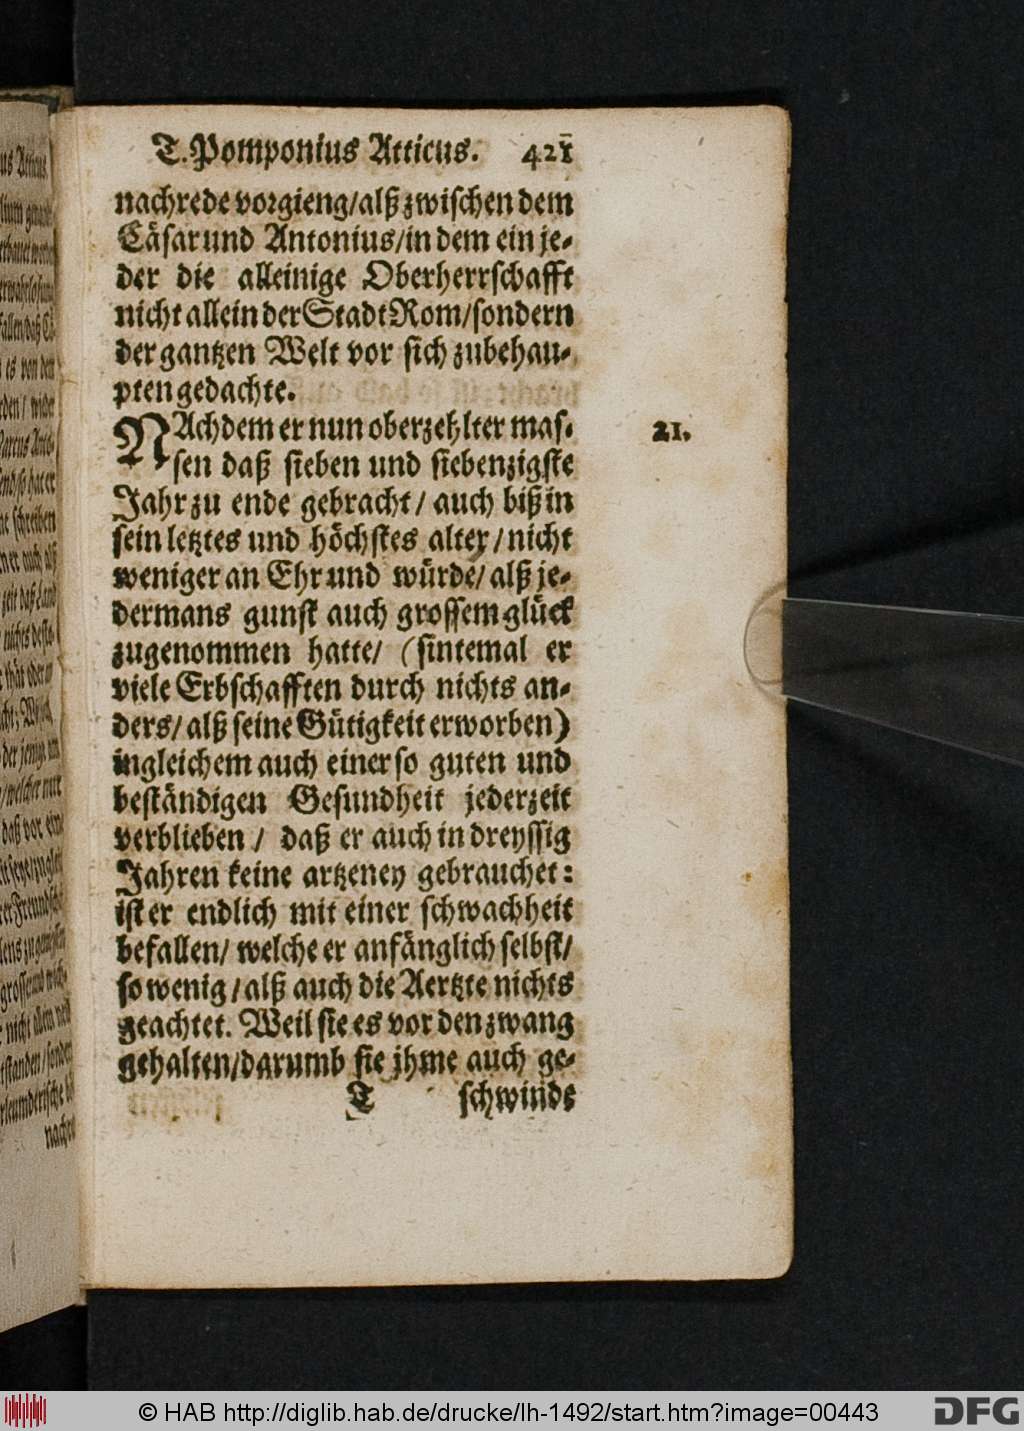 T. Pomponius Atticus. 421
nachrede vorgieng/ alß zwischen dem
Cäsar und Antonius/ in dem ein je-
der die alleinige Oberherrschafft
nicht allein der Stadt Rom/ sondern
der gantzen Welt vor sich zubehau-
pten gedachte.
NAchdem er nun oberzehlter mas- 21.
sen daß sieben und siebenzigste
Jahr zu ende gebracht/ auch biß in
sein letztes und höchstes alter/ nicht
weniger an Ehr und würde/ alß je-
dermans gunst auch grossem glück
zugenommen hatte/ (sintemal er
viele Erbschafften durch nichts an-
ders/ alß seine Gütigkeit erworben)
ingleichem auch einer so guten und
beständigen Gesundheit jederzeit
verblieben/ daß er auch in dreyssig
Jahren keine artzeney gebrauchet:
ist er endlich mit einer schwachheit
befallen/ welche er anfänglich selbst/
so wenig/ alß auch die Aertzte nichts
geachtet. Weil sie es vor den zwang
gehalten/ darumb sie jhme auch ge-
T schwinde
© HAB http://diglib.hab.de/drucke/lh-1492/start.htm?image=00443
DFG